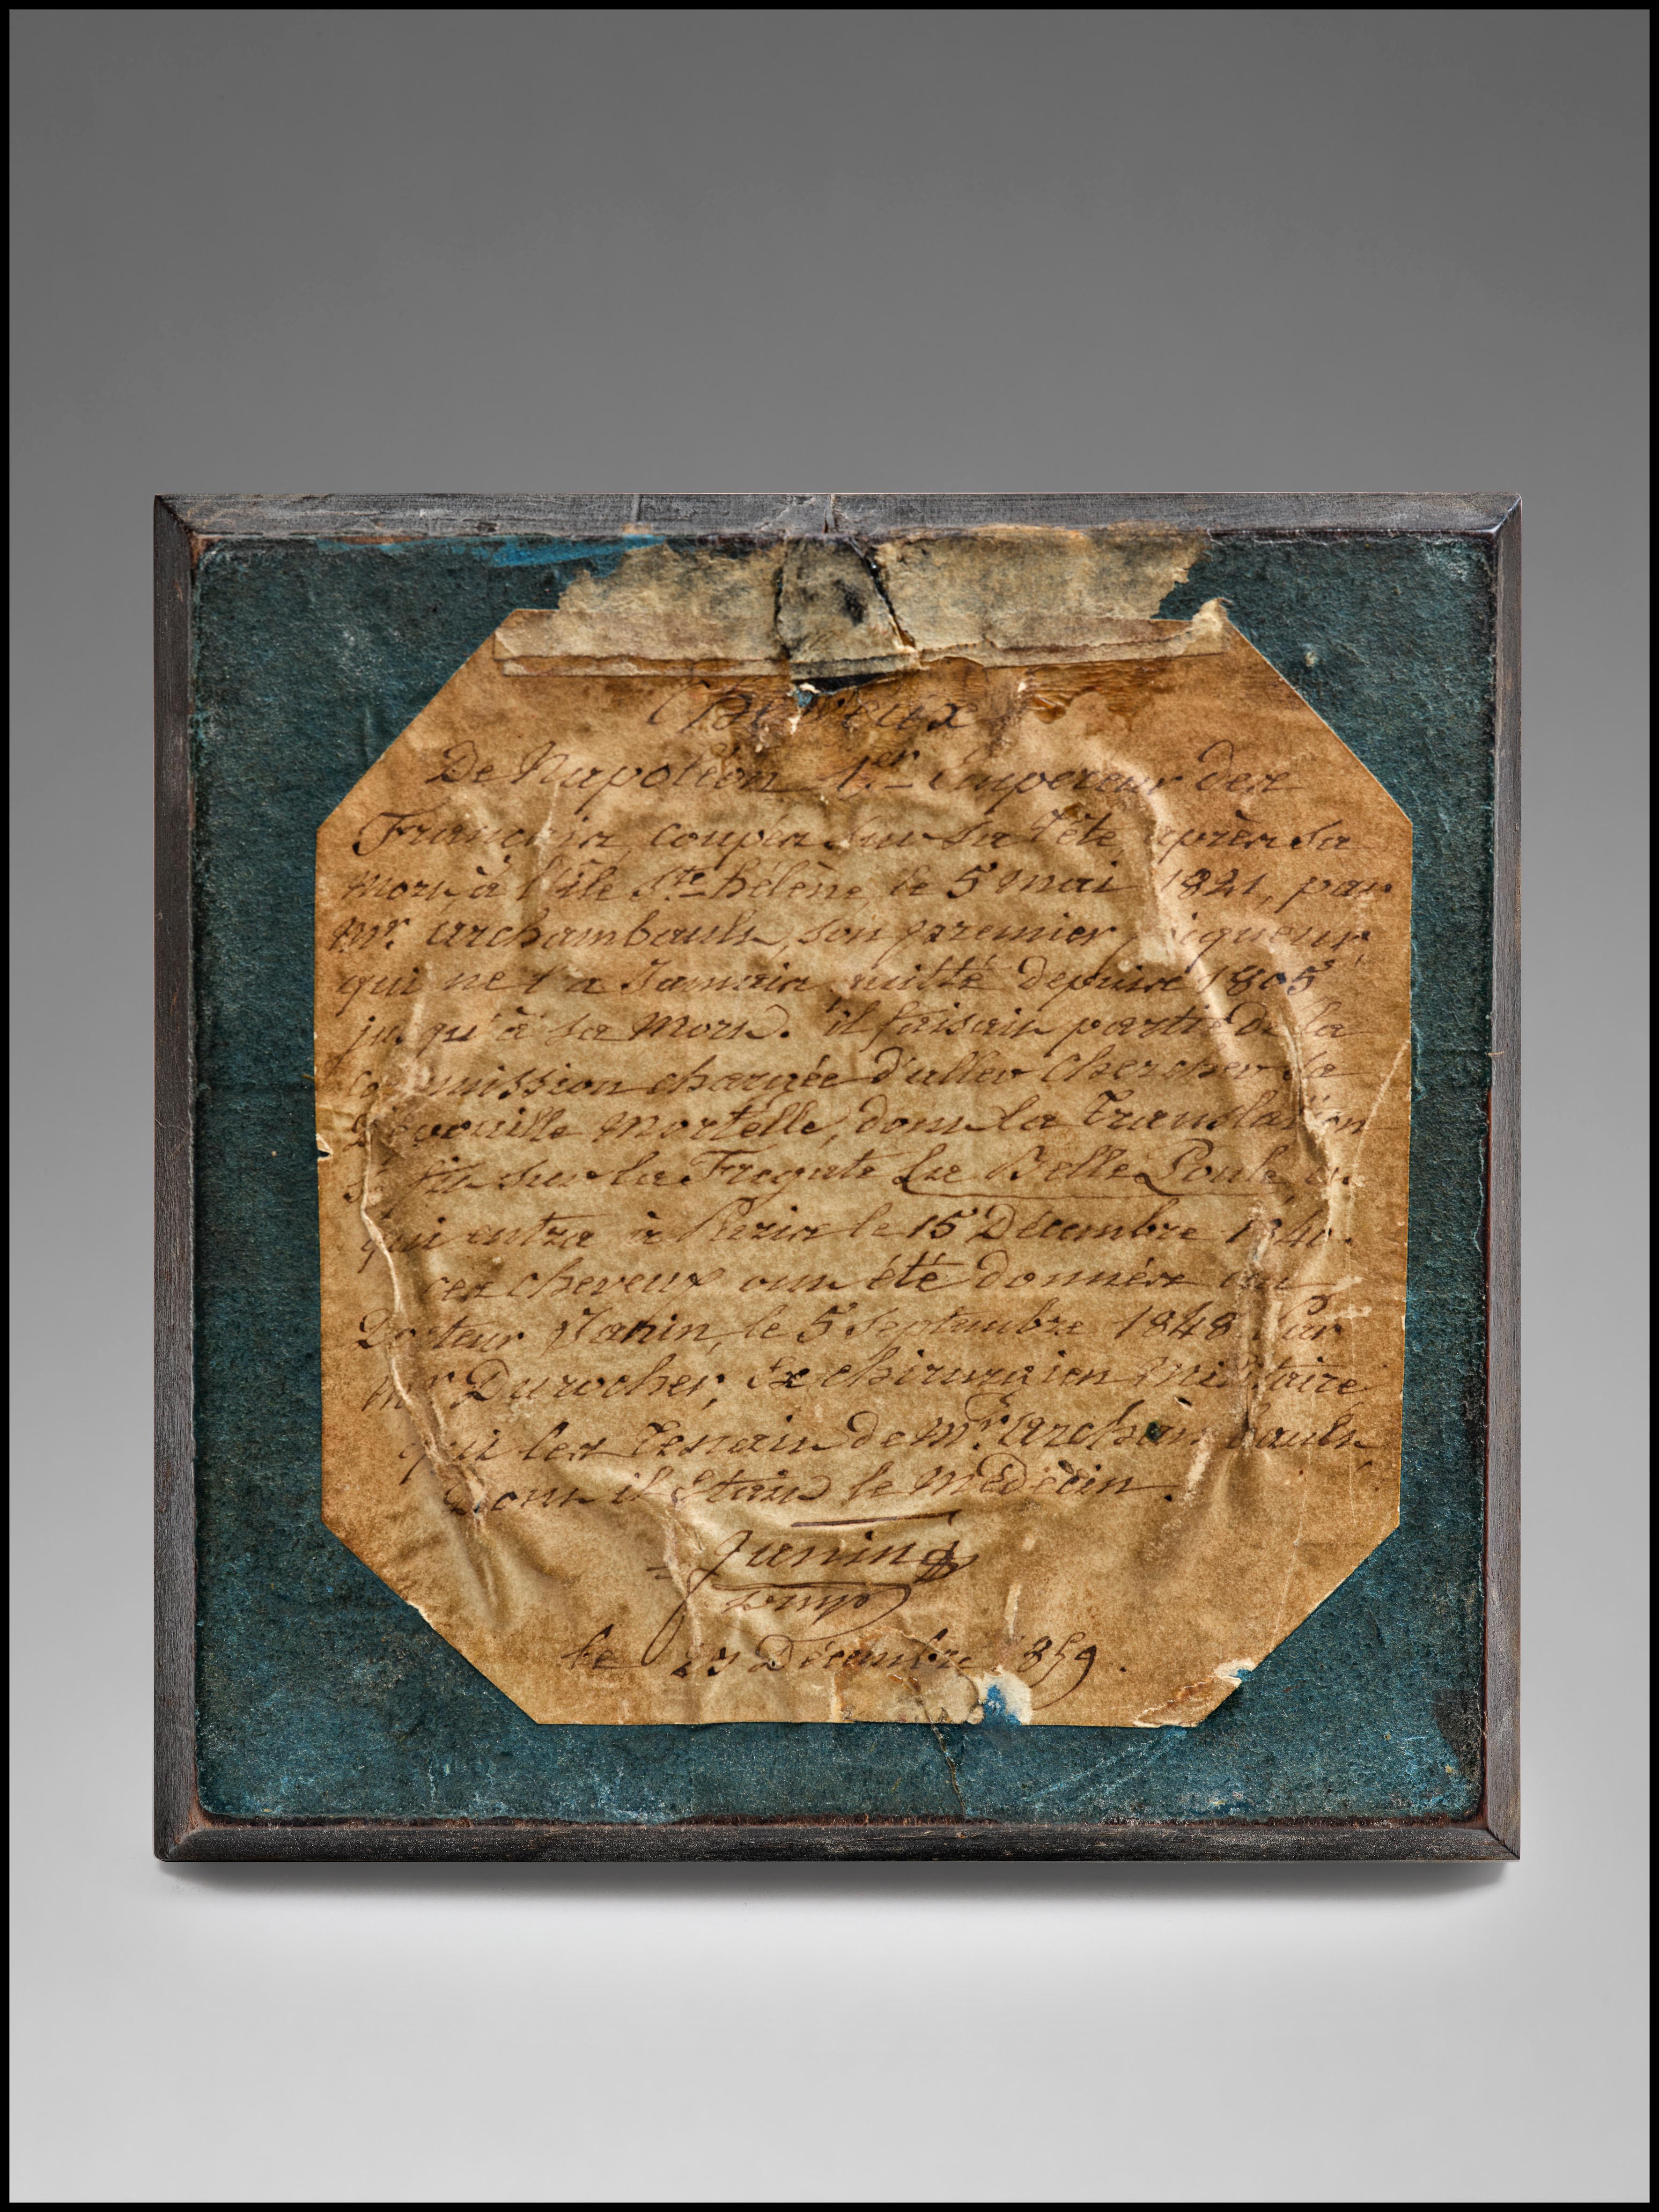 Cheveux
De Napoléon 1er Empereur des
Français, coupés sur sa tête après sa
mort à l'île Ste hélène, le 5 mai 1821, par
Mr. Archambault, son premier piqueur,
qui ne l'a Jamais quitté depuis 1805
jusqu'à sa mort. il faisait partie de la
commission chargée d'aller chercher sa
Dépouille mortelle, dont la translation
se fit sur la Frégate La Belle Poule, et
qui entra à Paris le 15 Décembre 1840.
ces cheveux ont été donnés au
Docteur Janin, le 5 septembre 1848 Par
mr Durocher, Ex chirurgien militaire
qui les tenait de Mr. Archambault,
Dont il Etait le Médecin.
Janin
le Décembre 1859.